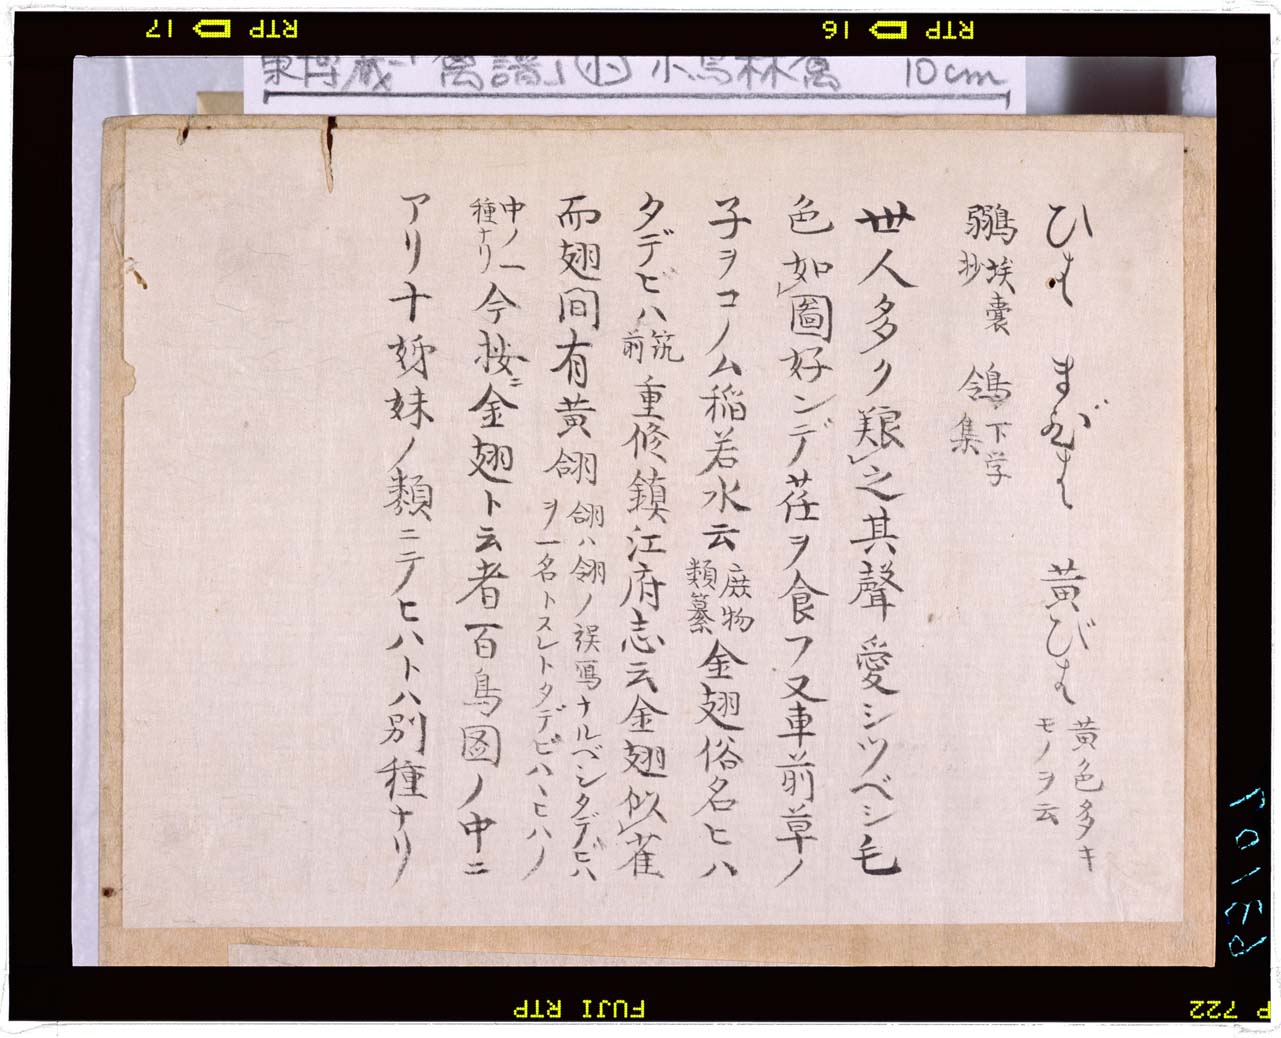 東博蔵「禽譜」 小鳥林禽 10cm
ひは まひは 黄びは 黄色多キモノヲ云
鶸 埃嚢抄 鴒 下学集
世人多ク𮮐之其聲愛シツベシ毛
色如圖好ンデ荏ヲ食フ又車前草ノ
子ヲコノム稲若水云 庶物類纂 金翅俗名ヒハ
タデビハ 筑前 重修鎮江府志云金翅似雀
而翅間有黄翖 翖ハ翎ノ誤寫ナルベシタデビハヲ一名トスレトタデビハヽヒハノ
中ノ一種ナリ 今按ニ金翅ト云者百鳥図ノ中ニ
アリ十姊妹ノ類ニテノヒハトハ別種ナリ
RTP 17
RTP 16
FUJI RTP
P 722